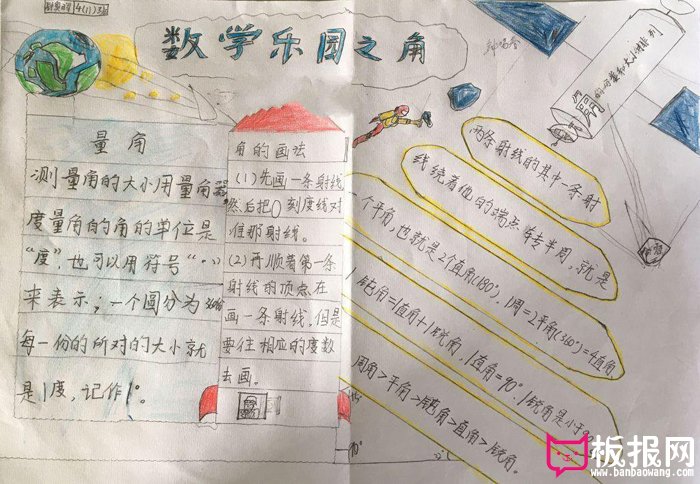 4(1)
数学乐园之角
量角
测量角的大小用量角器
度量角的角的单位是
“度”,也可以用符号“°”
来表示;一个圆分为360份
每一份的所对的大小就
是1度,记作1°。
角的画法
(1)先画一条射线
然后把0刻度线对
准那射线。
(2)再顺着第一条
射线的顶点在
画一条射线,但是
要往相应的度数
去画。
两条射线的其中一条射
线绕着他的端点转半周,就是
一个平角,也就是2个直角(180°),1周=2平角(360°)=4直角
1钝角=1直角+1锐角,1直角=90°,1锐角是小于90
周角>平角>钝角>直角>锐角。
板报网
www.banbaowang.com